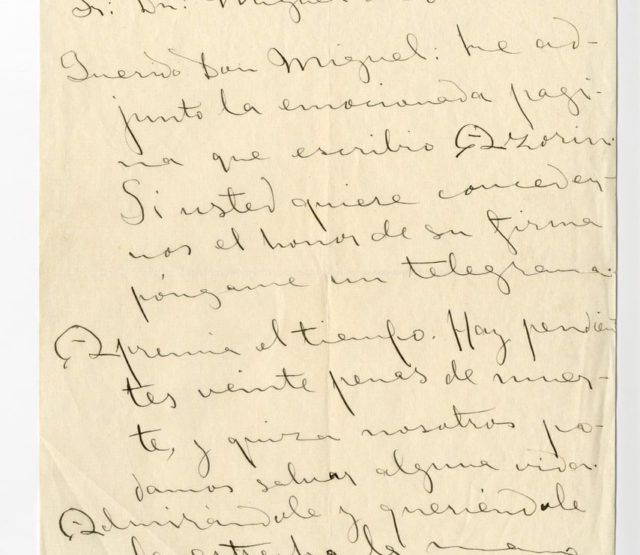 Sr. Dn. Miguel de
Querido Don Miguel: le ad-
junto la emocionada pagi-
na que escribio Azorin.
Si usted quiere conceder-
nos el honor de su firma
póngame un telegrama.
Apremia el tiempo. Hay pendien
tes veinte penas de muer-
te, y quiza nosotros po-
damos salvar alguna vida.
Admirándole y queriéndole
le estrecha la mano